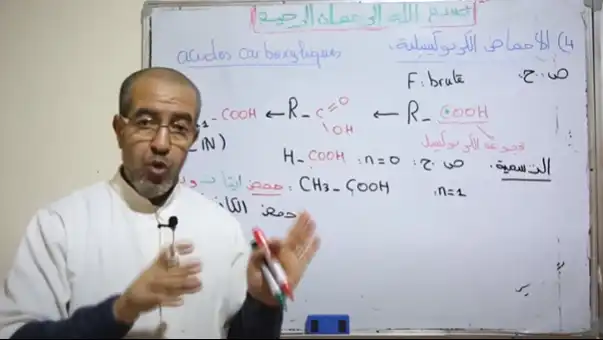 بسم الله الرحمان الرحيم
4) الأحماض الكربوكسيلية.
acides carboxyliques
ص. ح.
F: brute
-COOH ← R-C=O OH ← R-COOH
مجموعة الكربوكسيل
IN)
التسمية: ص. ح: n=0 : H-COOH
n=1 CH3-COOH : حمض
حمض